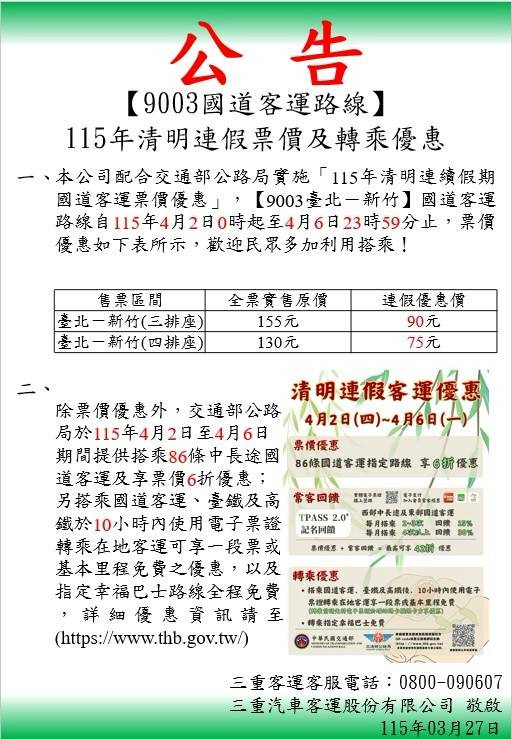 公告
【9003國道客運路線】
115年清明連假票價及轉乘優惠
一、本公司配合交通部公路局實施「115年清明連續假期
國道客運票價優惠」，【9003臺北－新竹】國道客運
路線自115年4月2日0時起至4月6日23時59分止，票價
優惠如下表所示，歡迎民眾多加利用搭乘！
售票區間 全票實售原價 連假優惠價
臺北－新竹(三排座) 155元 90元
臺北－新竹(四排座) 130元 75元
二、
除票價優惠外，交通部公路
局於115年4月2日至4月6日
期間提供搭乘86條中長途國
道客運及享票價6折優惠；
另搭乘國道客運、臺鐵及高
鐵於10小時內使用電子票證
轉乘在地客運可享一段票或
基本里程免費之優惠，以及
指定幸福巴士路線全程免費
，詳細優惠資訊請至
(https://www.thb.gov.tw/)
清明連假客運優惠
4月2日(四)~4月6日(一)
票價優惠
86條國道客運指定路線 享6折優惠
常客回饋
TPASS 2.0+
記名回饋
西部中長途及東部國道客運
每月搭乘 2-3次 回饋 15%
每月搭乘 4次以上 回饋 30%
票價優惠 + 常客回饋 = 最高可享 42折 優惠
轉乘優惠
• 搭乘國道客運、臺鐵及高鐵後，10小時內使用電子
票證轉乘在地客運享一段票或基本里程免費
• 轉乘指定幸福巴士免費
中華民國交通部
交通部公路局
三重客運客服電話：0800-090607
三重汽車客運股份有限公司 敬啟
115年03月27日